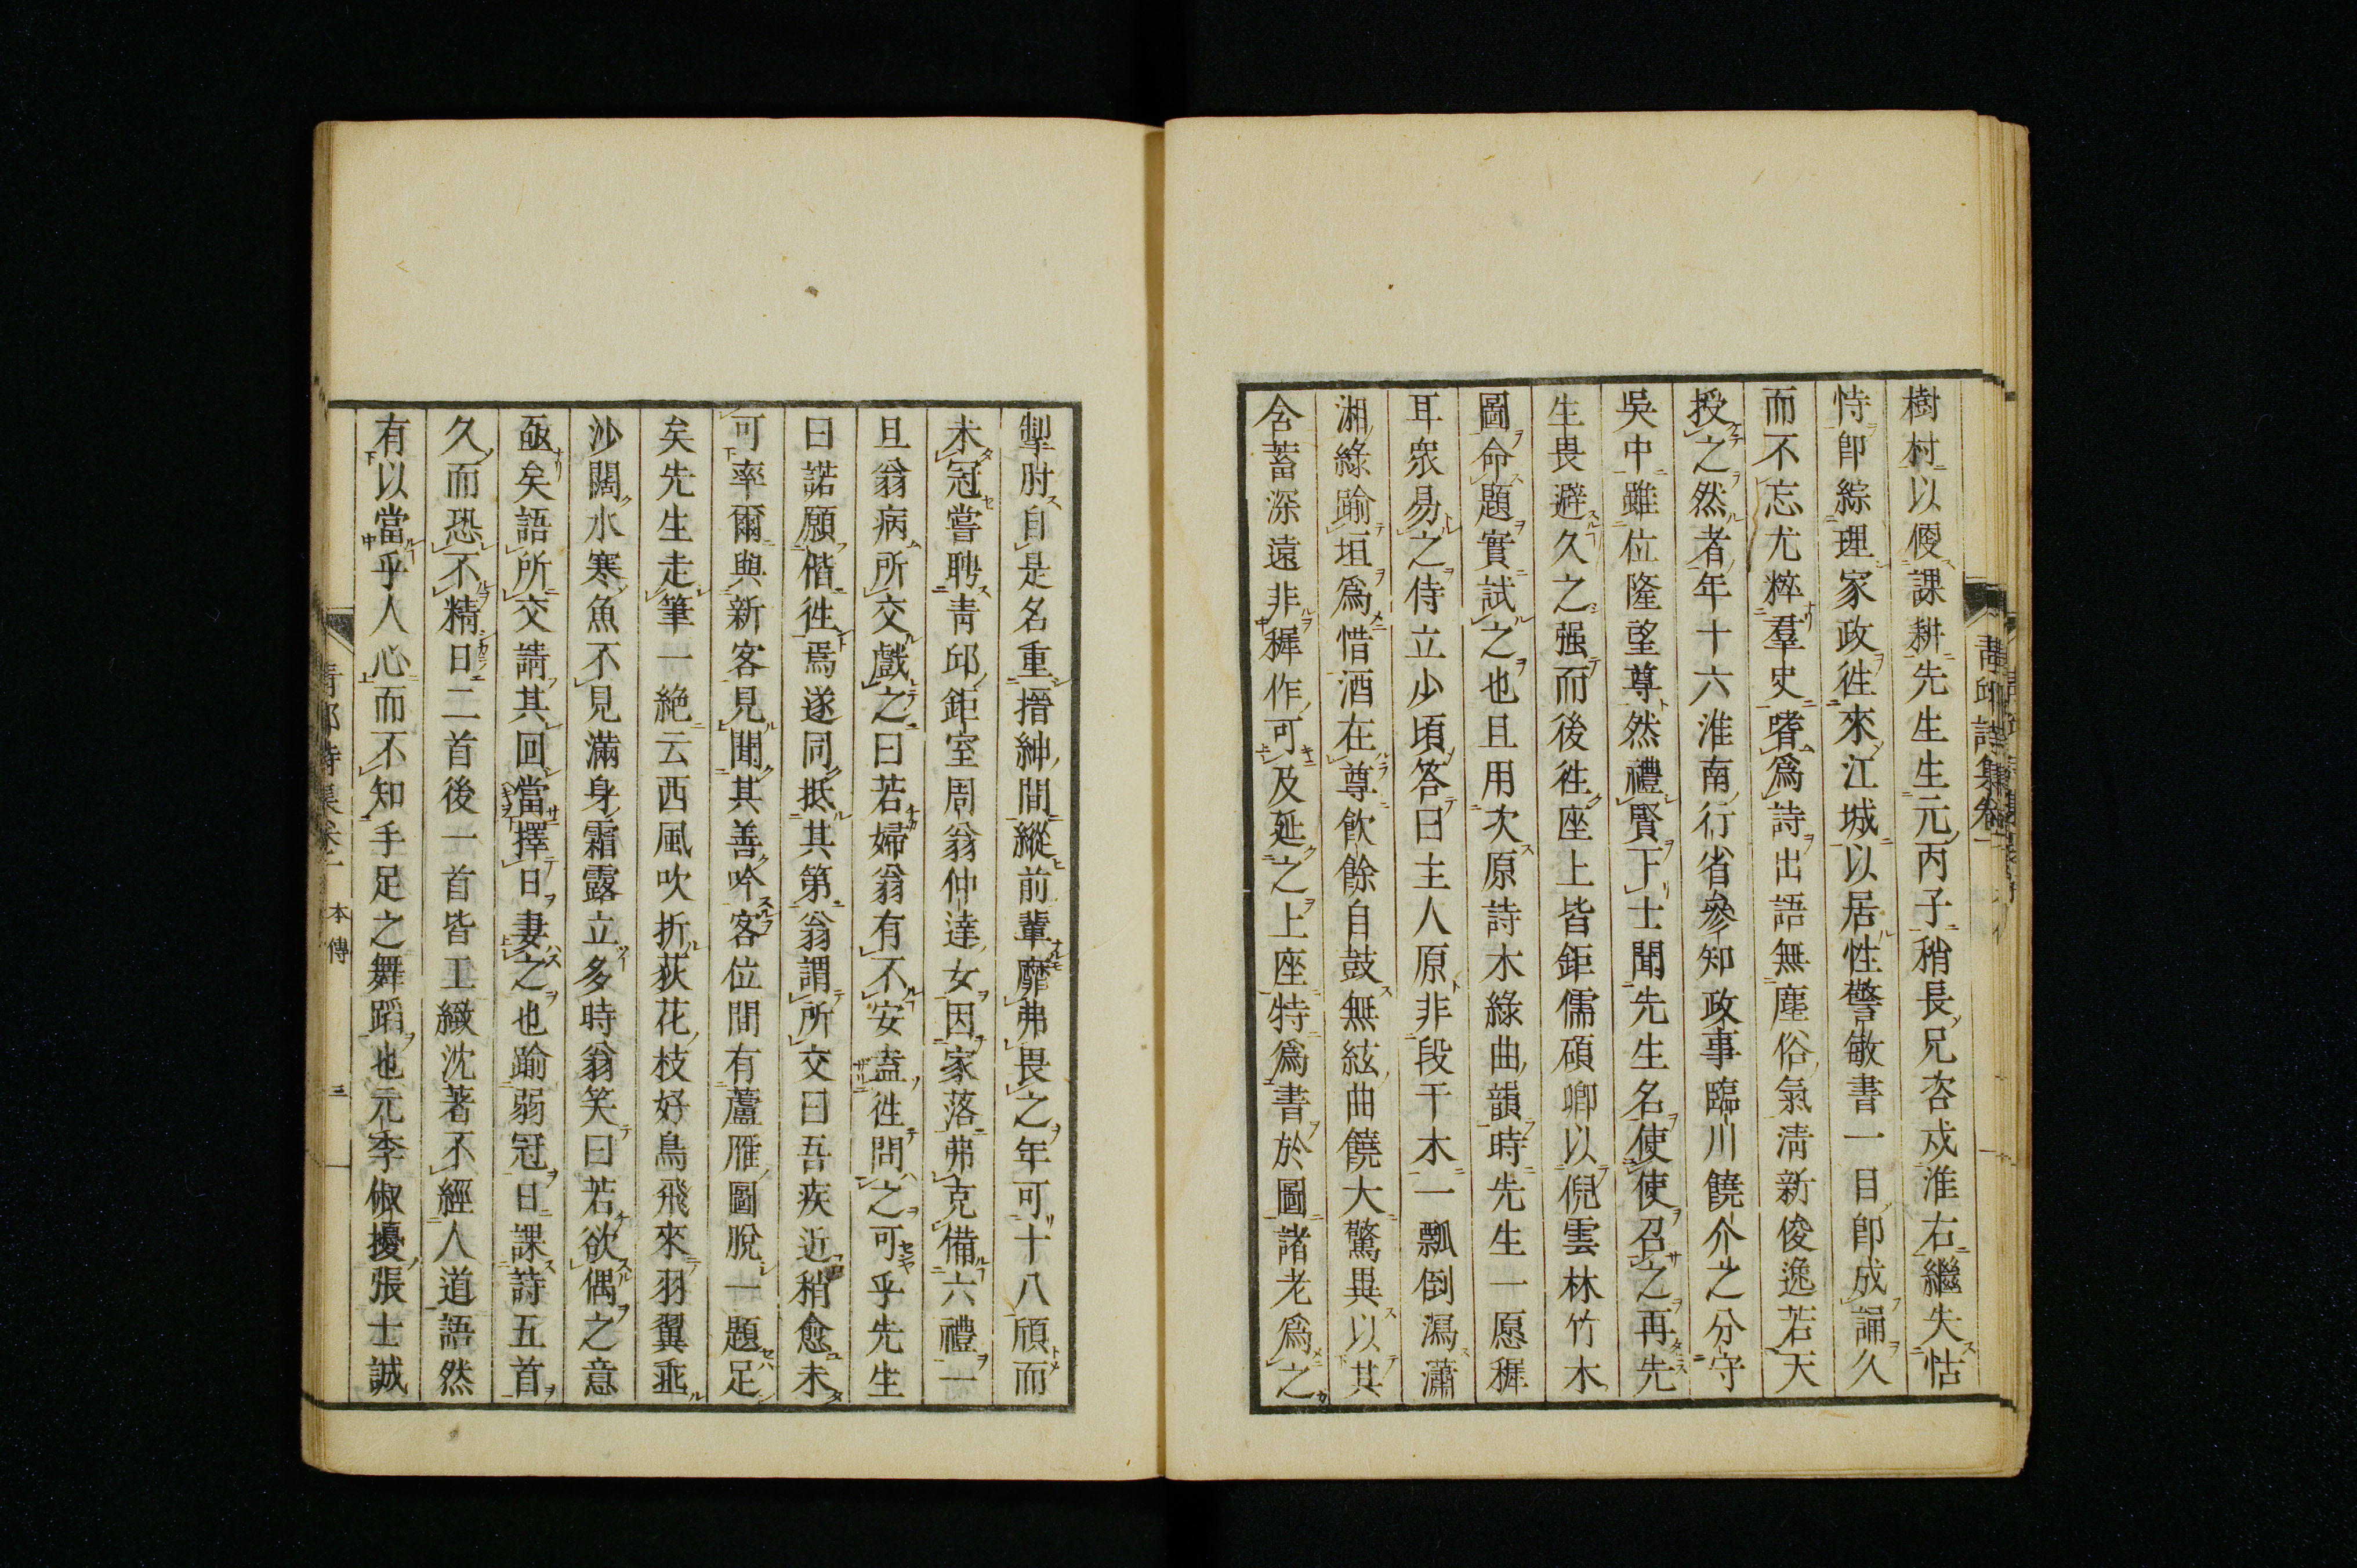 樹村以便課耕先生生元丙子稍長兄咨戍淮右繼失怙
恃卽綜理家政徃來江城以居性警敏書一目卽成誦久
而不忘尤粹羣史嗜爲詩出語無塵俗氣淸新俊逸若天
授之然者年十六淮南行省參知政事臨川饒介之分守
吳中雖位隆望尊然禮賢下士聞先生名使使召之再先
生畏避久之强而後徃座上皆鉅儒碩卿以倪雲林竹木
圖命題實試之也且用次原詩木綠曲韻時先生一愿穉
耳衆易之侍立少頃答曰主人原非段干木一瓢倒瀉瀟
湘綠踰垣爲惜酒在尊飮餘自鼓無絃曲饒大驚異以其
含蓄深遠非穉作可及延之上座特爲書於圖諸老爲之
掣肘自是名重搢紳間縱前輩靡弗畏之年可十八頎而
未冠嘗聘靑邱鉅室周翁仲達女因家落弗克備六禮一
旦翁病所交戲之曰若婦翁有不安盍徃問之可乎先生
曰諾願偕徃焉遂同抵其第翁謂所交曰吾疾近稍愈未
可率爾與新客見聞其善吟客位間有蘆雁圖脫一題足
矣先生走筆一絶云西風吹折荻花枝好鳥飛來羽翼垂
沙闊水寒魚不見滿身霜露立多時翁笑曰若欲偶之意
亟矣語所交請其回當擇日妻之也踰弱冠日課詩五首
久而恐不精日二首後一首皆工緻沈著不經人道語然
有以當乎人心而不知手足之舞蹈也元季俶擾張士誠
靑邱詩集卷一 本傳 三